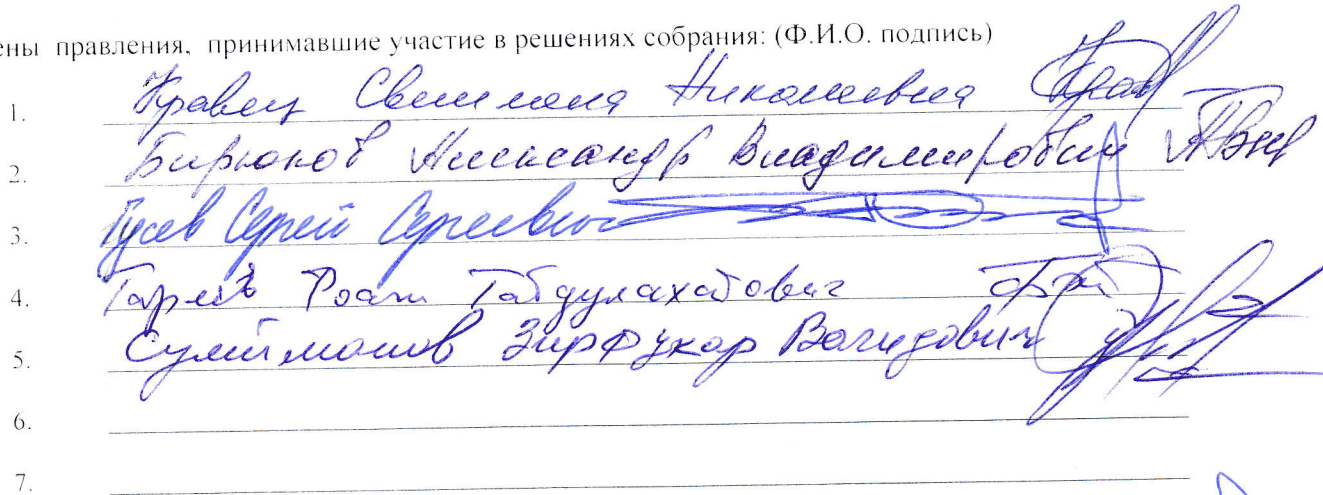 ены правления, принимавшие участие в решениях собрания: (Ф.И.О. подпись)
1. Кравец Светлана Николаевна
2. Бирюков Александр Владимирович
3. Гусев Сергей Сергеевич
4. Гареев
5. Сулейманов Вагидович
6.
7.